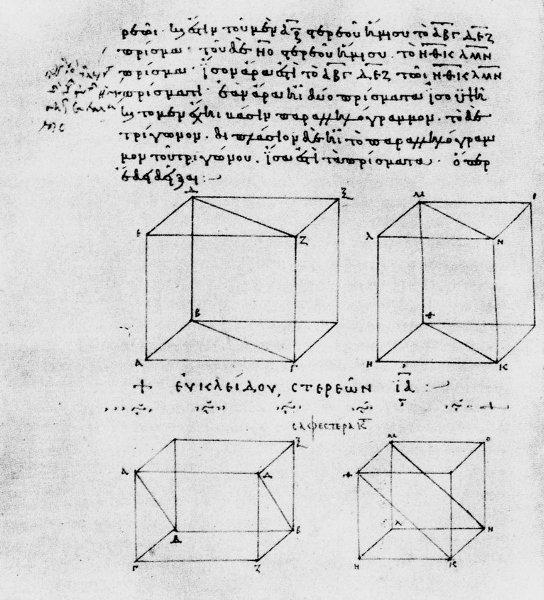 ρεῶι · καὶ ἐστὶν τοῦ μὲν ΑΞ στερεοῦ ἥμισυ τὸ ΑΒΓ ΔΕΖ
πρίσμα · τοῦ δὲ ΗΟ στερεοῦ ἥμισυ · τὸ ΗΘΚ ΛΜΝ
πρίσμα · ἴσον ἄρα ἐστὶ τὸ ΑΒΓ ΔΕΖ τῶι ΗΘΚ ΛΜΝ
πρίσματι · ἐὰν ἄρα ἦι δύο πρίσματα ἰσοϋψῆ
καὶ τὸ μὲν ἔχηι βάσιν παραλληλόγραμμον · τὸ δὲ
τρίγωνον · διπλάσιον δὲ ἦι τὸ παραλληλόγραμ
μον τοῦ τριγώνου · ἴσα ἐστὶ τὰ πρίσματα · ὅπερ
ἔδει δεῖξαι :
Δ Ξ Μ
Ε Ζ Λ Ν
Β Θ
Α Γ Η Κ
ΕΥΚΛΕΙΔΟΥ, ΣΤΕΡΕΩΝ ΙΑ :
σαφεστερα
Ξ Μ Ο
Α Δ Θ
Β Ε Λ Ν
Γ Ζ Η Κ